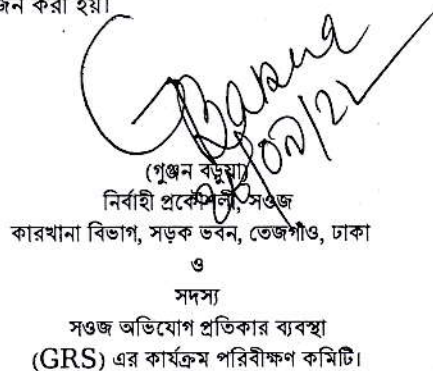 জন করা হয়।
(গুঞ্জন বড়ুয়া)
নির্বাহী প্রকৌশলী, সওজ
কারখানা বিভাগ, সড়ক ভবন, তেজগাঁও, ঢাকা
ও
সদস্য
সওজ অভিযোগ প্রতিকার ব্যবস্থা
(GRS) এর কার্যক্রম পরিবীক্ষণ কমিটি।